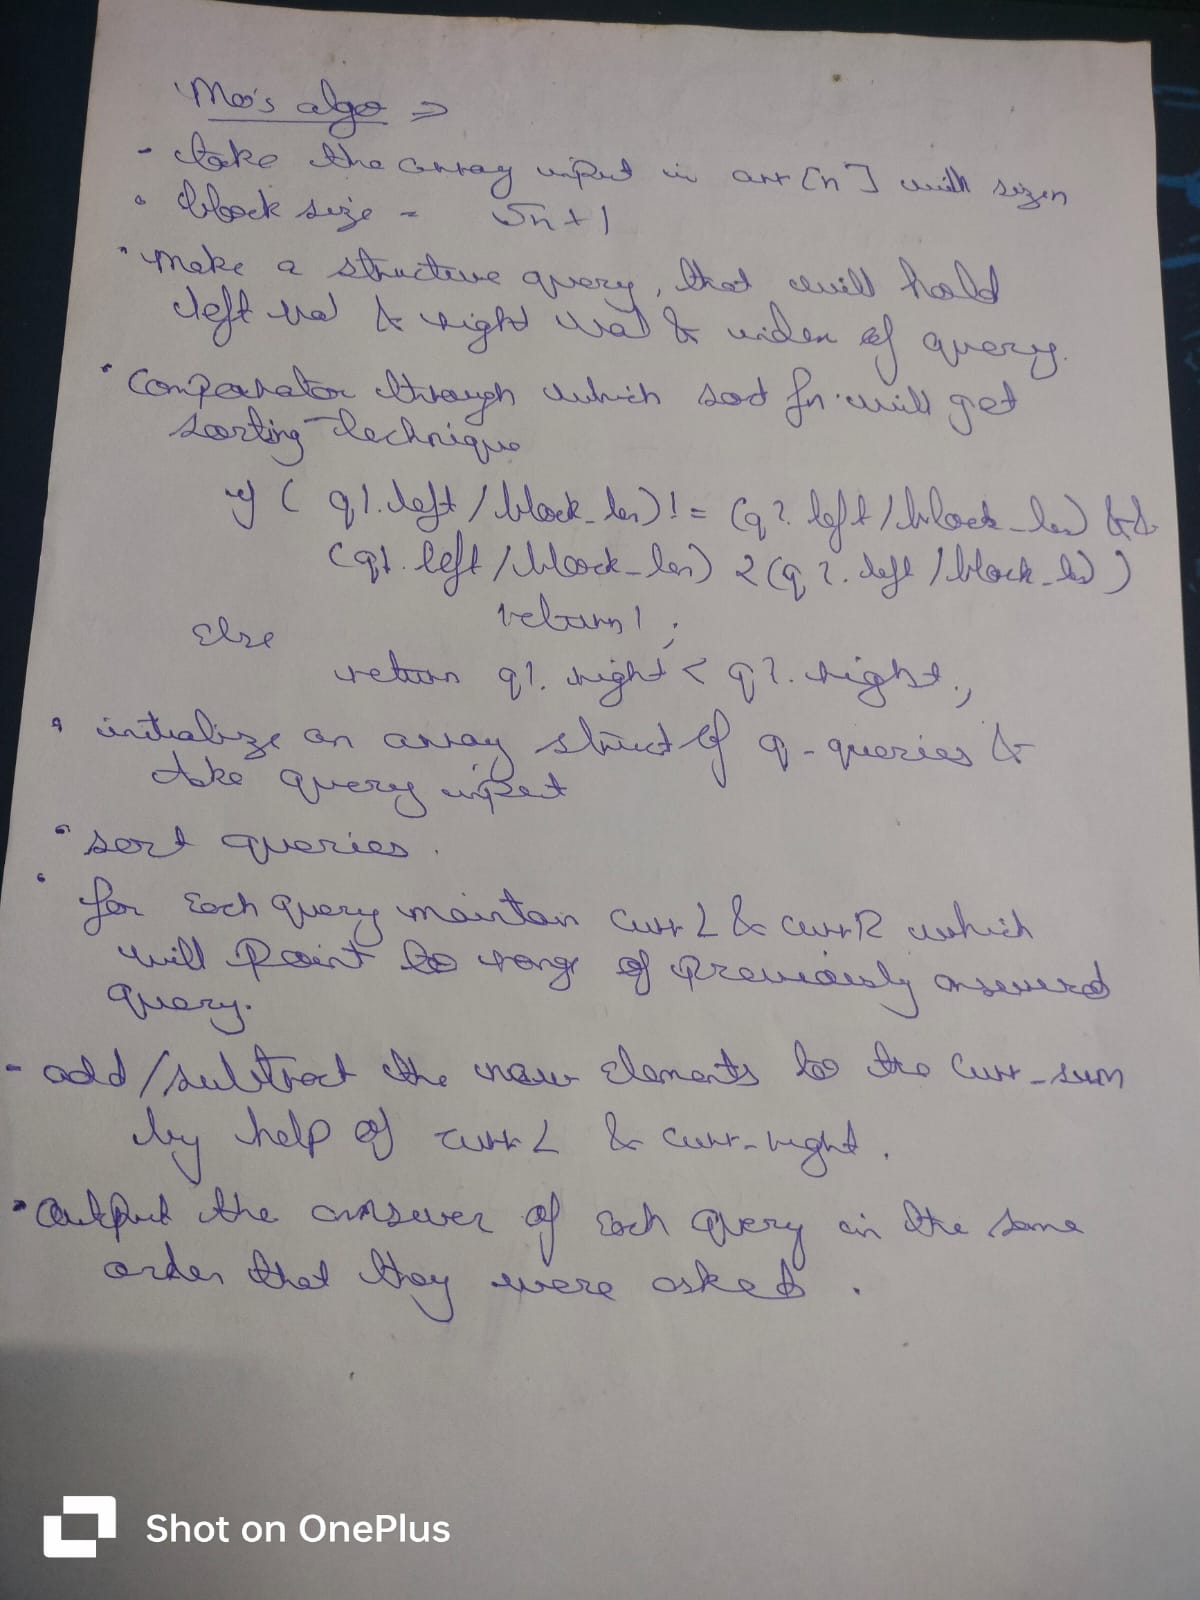 Mo's algo ⇒
- take the array input in arr[n] with size n
• block size = √n+1
• make a structure query, that will hold
left val & right val & index of query.
• Comparator through which sort fn will get
sorting technique
if ( q1.left / block_len) != (q2.left / block_len) &&
(q1.left / block_len) < (q2.left / block_len) )
return 1 ;
Else
return q1.right < q2.right ;
• initialize an array struct of q-queries &
take query input
• sort queries.
• for Each query maintain curr L & curr R which
will Point to range of previously answered
query.
- add/subtract the new elements to the curr_sum
by help of curr L & curr-right.
• Output the answer of Each query in the same
order that they were asked.